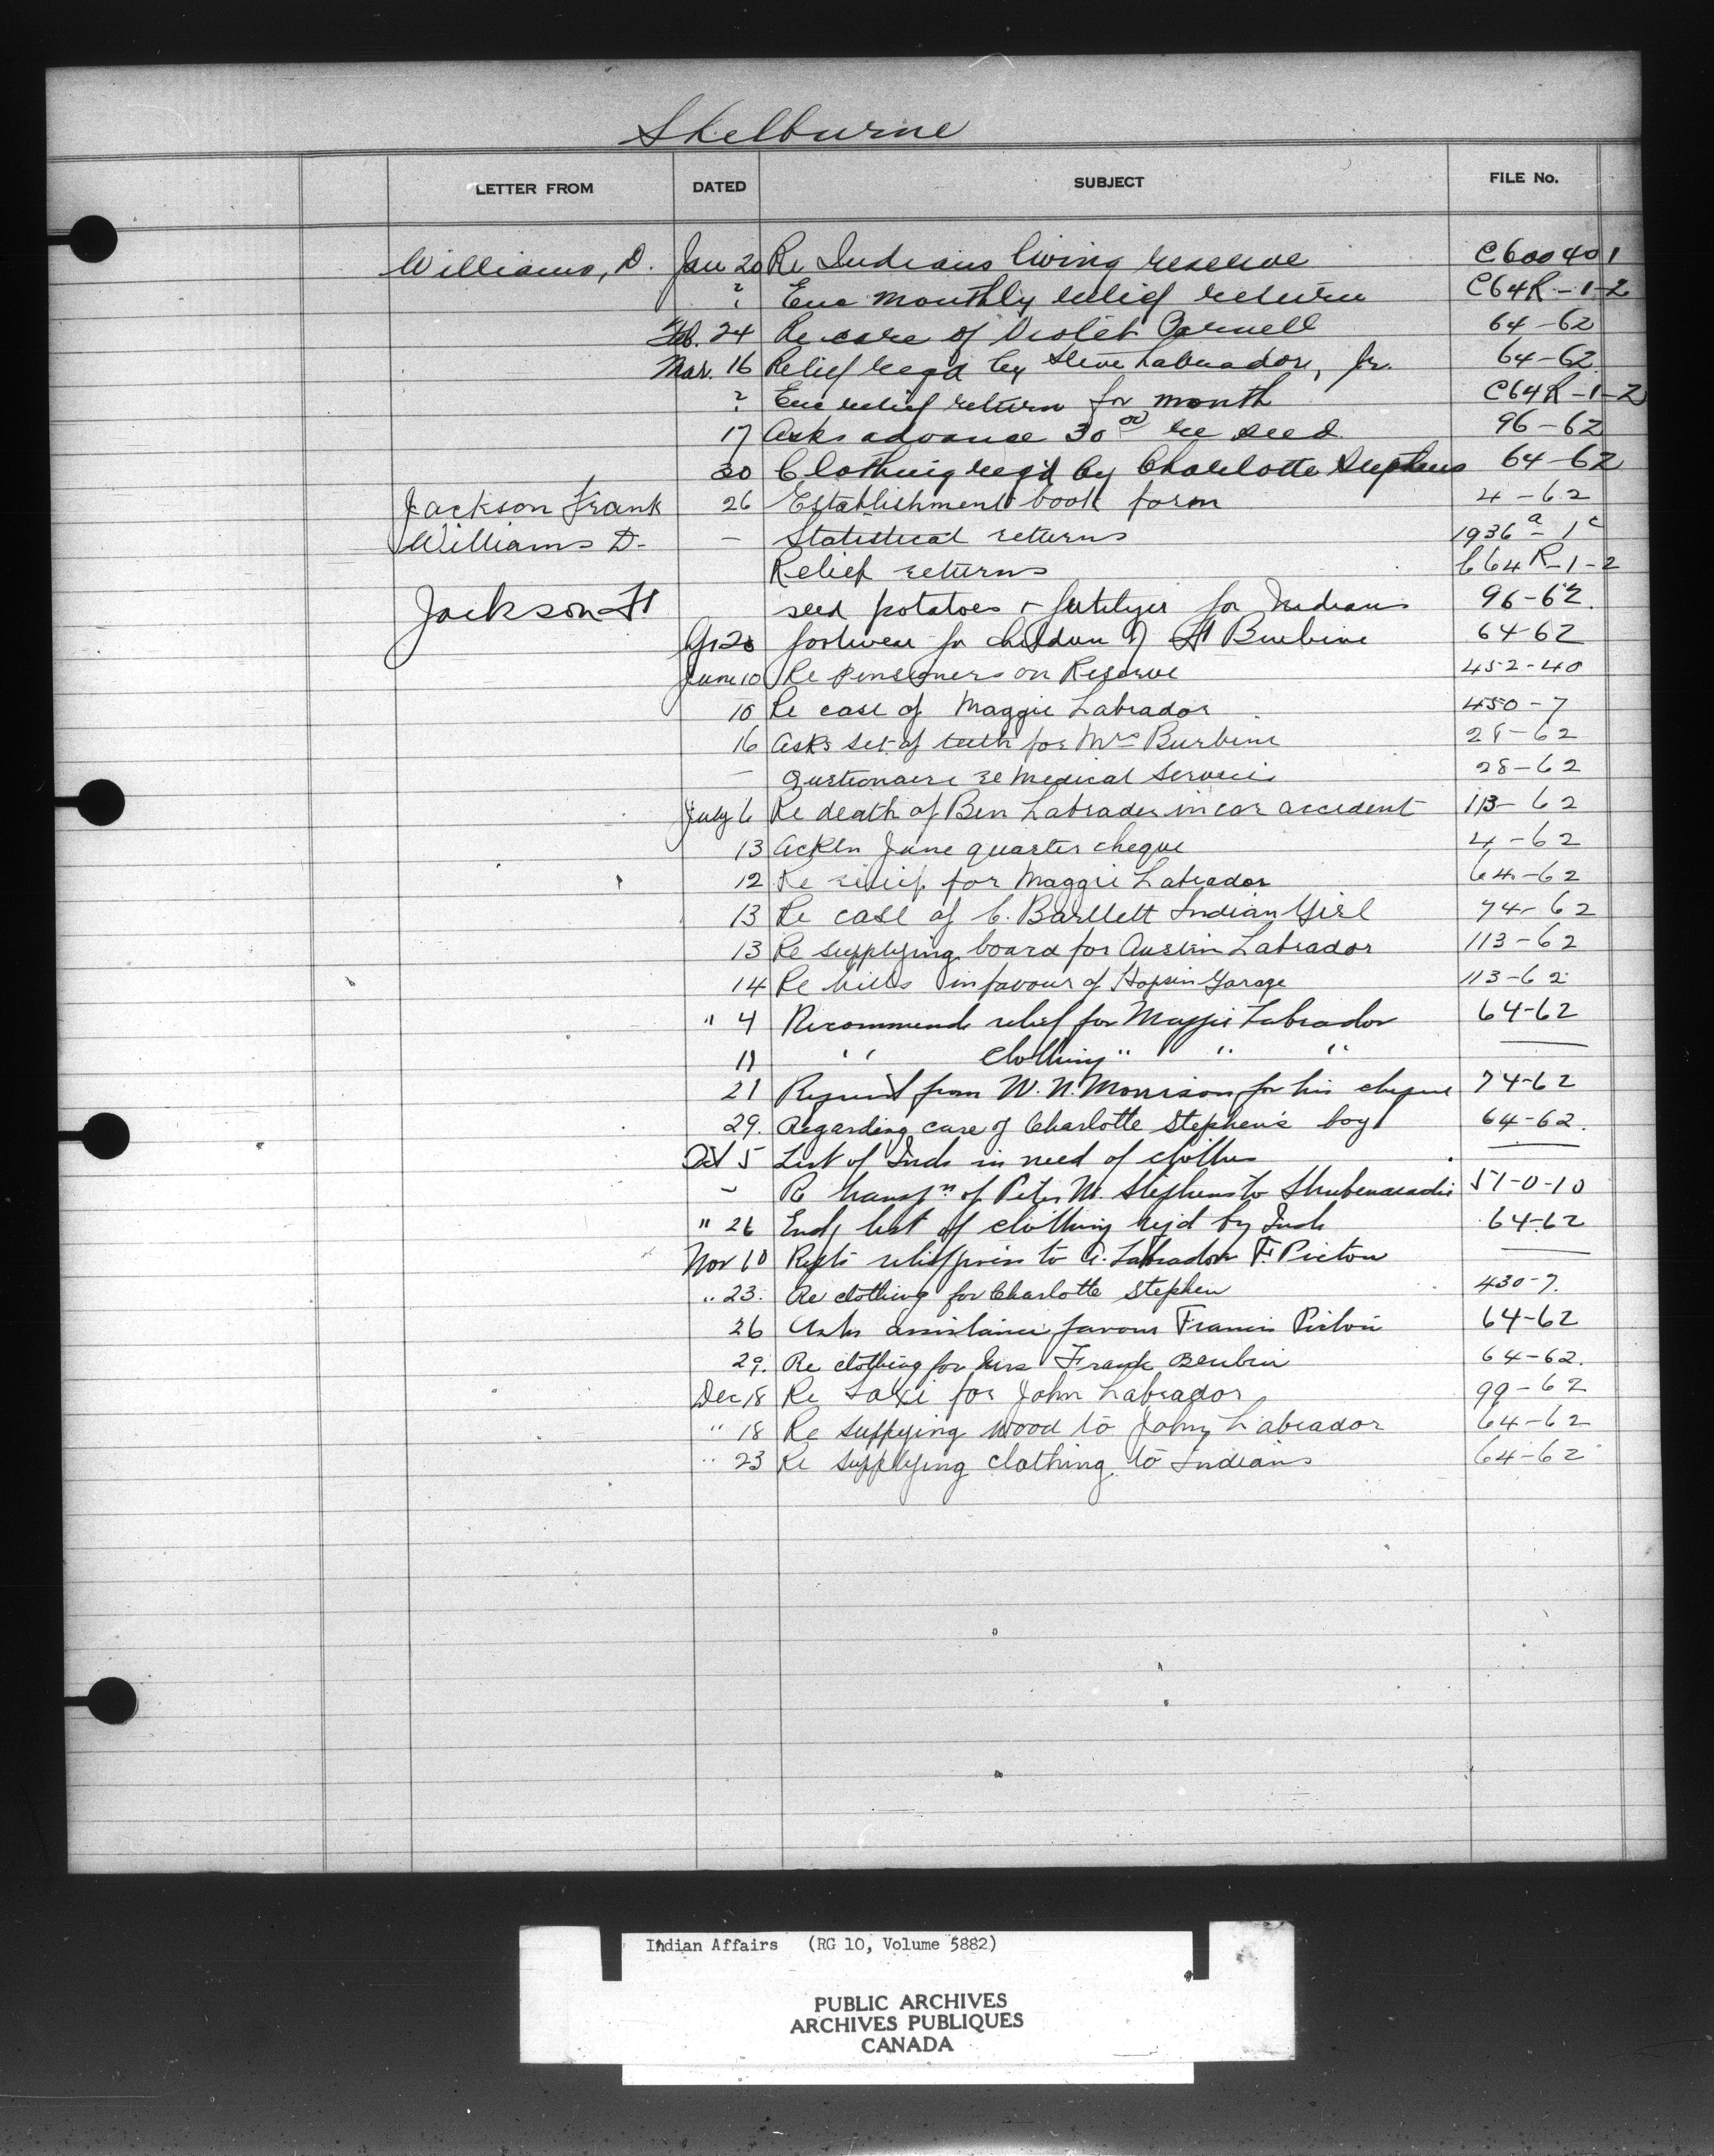 Shelburne
LETTER FROM DATED SUBJECT FILE No.
Williams, D. Jan 20 Re Indians living reserve C600401
? Enc monthly relief return C64R-1-2
Feb. 24 Re care of Violet Parnell 64-62
Mar. 16 Relief reqd by Steve Labrador, Jr. 64-62
? Enc relief return for month C64R-1-2
17 Asks advance 30 00 re seed 96-62
30 Clothing req'd by Charlotte Stephens 64-62
Jackson Frank 26 Establishment book form 4-62
Williams D. - Statistical returns 1936a-1c
Relief returns C64R-1-2
Jackson F seed potatoes + fertilizer for Indians 96-62
20 footwear for children of Burbine 64-62
June 10 Re pensioners on Reserve 452-40
10 Re case of Maggie Labrador 450-7
16 Asks set of teeth for Mrs Burbine 28-62
- Questionaire re Medical Services 28-62
July 6 Re death of Ben Labrador in car accident 113-62
13 Ackln June quarter cheque 4-62
12 Re relief for Maggie Labrador 64-62
13 Re case of C. Bartlett Indian Girl 74-62
13 Re supplying board for Austin Labrador 113-62
14 Re bills in favour of Hopkin Garage 113-62
" 4 Recommends relief for Maggie Labrador 64-62
11 " Clothing " " "
21 Request from W. N. Morrison for his cheque 74-62
29. Regarding care of Charlotte Stephen's boy 64-62.
Oct 5 List of Inds in need of clothes
- Re transfn of Peter M. Stephens to Shubenacadie 51-0-10
" 26 Encl list of clothing rej'd by Inds 64-62
Nov 10 relief given to A. Labrador F. Picton
" 23. Re clothing for Charlotte Stephen 430-7.
26 Asks assistance favour Francis Picton 64-62
29. Re clothing for Mrs Frank Beubin 64-62.
Dec 18 Re taxi for John Labrador 99-62
" 18 Re supplying wood to John Labrador 64-62
" 23 Re supplying clothing to Indians 64-62
Indian Affairs (RG 10, Volume 5882)
PUBLIC ARCHIVES
ARCHIVES PUBLIQUES
CANADA